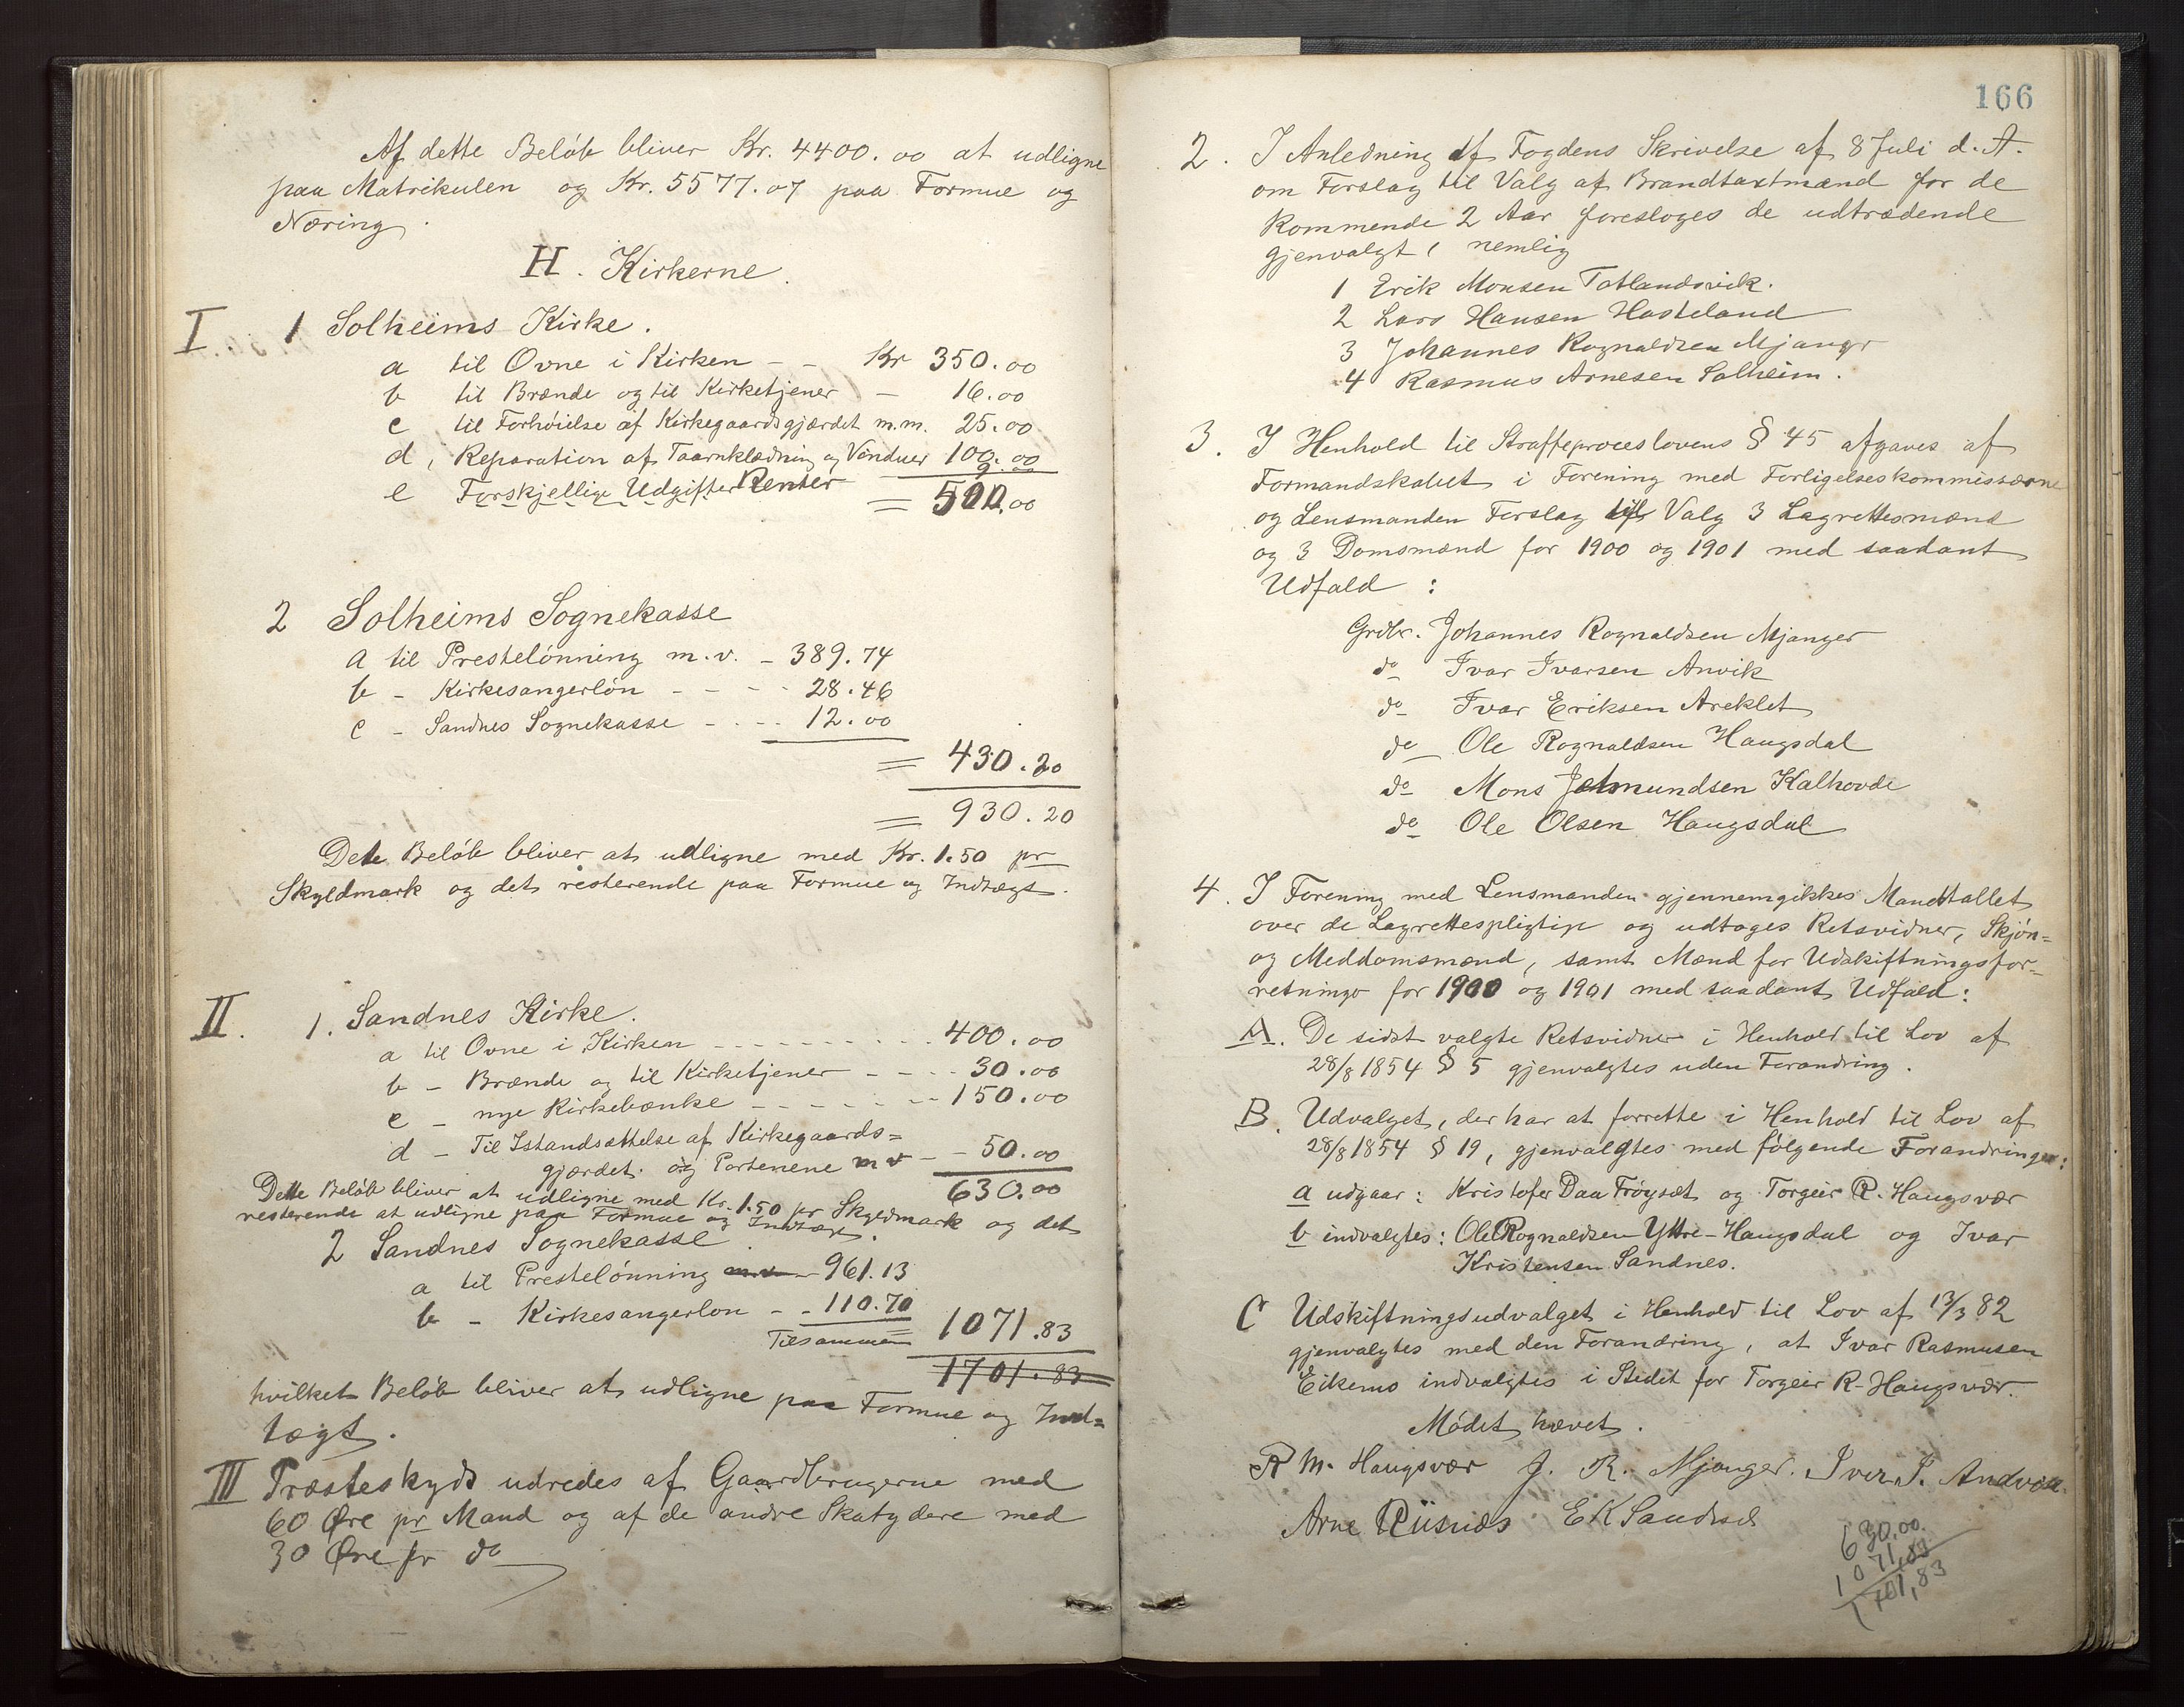 Af dette Beløb bliver Kr. 4400.00 at udligne
paa Matrikulen og Kr. 5577.07 paa Formue og
Næring.
H. Kirkerne.
I 1 Solheims Kirke.
a til Ovne i Kirken - - Kr 350.00
b til Brænde og til Kirketjener - 16.00
c til Forhøielse af Kirkegaardsgjærdet m.m. 25.00
d, Reparation af Taarnklædning og Vinduer 100.00
e Forskjellige Udgifter Renter 9
= 500.00
2 Solheims Sognekasse
a til Prestelønning m.v. - 389.74
b - Kirkesangerløn - - - - 28.46
c - Sandnes Sognekasse - - - - 12.00
= 430.20
= 930.20
Dete Beløb bliver at udligne med Kr. 1.50 pr
Skyldmark og det resterende paa Formue og Indtægt.
II. 1. Sandnes Kirke.
a til Ovne i Kirken - - - - - - - - - 400.00
b - Brænde og til Kirketjener - - - - 30.00
c - nye Kirkebænke - - - - - - - 150.00
d - Til Istandsættelse af Kirkegaards=
gjærdet og Portenene m v - - 50.00
630.00
Dette Beløb bliver at udligne med Kr. 1.50 pr Skyldmark og det
resterende at udligne paa Formue og Indtægt.
2 Sandnes Sognekasse
a til Prestelønning m.v. - 961.13
b - Kirkesangerløn - - 110.70
Tilsammen 1071.83
1701.83
hvilket Beløb bliver at udligne paa Formue og Ind=
tægt.
III Præsteskyds udredes af Gaardbrugerne med
60 Øre pr Mand og af de andre Skatydere med
30 Øre pr do
166
2. I Anledning af Fogdens Skrivelse af 8 Juli d. A.
om Forslag til Valg af Brandtaxtmænd for de
kommende 2 Aar foresloges de udtrædende
gjenvalgt, nemlig
1 Erik Monsen Totlandsvik.
2 Lars Hansen Hosteland
3 Johannes Rognaldsen Mjanger
4 Rasmus Arnesen Solheim.
3. I Henhold til Straffeproceslovens § 45 afgaves af
Formandskabet i Forening med Forligelseskommissærne
og Lensmanden Forslag til Valg 3 Lagrettesmænd
og 3 Domsmænd for 1900 og 1901 med saadant
Udfald :
Grdbr. Johannes Rognaldsen Mjanger
do Ivar Ivarsen Anvik
do Ivar Eriksen Areklet
do Ole Rognaldsen Haugsdal
do Mons Jetmundsen Kalhovde
do Ole Olsen Haugsdal
4. I Forening med Lensmanden gjennemgikkes Mandtallet
over de Lagrettespligtige og udtoges Retsvidner, Skjøn=
og Meddomsmænd, samt Mænd for Udskiftningsfor=
retninger for 1900 og 1901 med saadant Udfald:
A. De sidst valgte Retsvidner i Henhold til Lov af
28/8 1854 § 5 gjenvalgtes uden Forandring.
B. Udvalget, der har at forrette i Henhold til Lov af
28/8 1854 § 19, gjenvalgtes med følgende Forandringer:
a udgaar: Kristofer Daa Frøyset og Torgeir R. Haugsvær
b indvalgtes: Ole Rognaldsen Yttre-Haugsdal og Ivar
Kristensen Sandnes.
C Udskiftningsudvalget i Henhold til Lov af 13/3 82
gjenvalgtes med den Forandring, at Ivar Rasmusen
Eikemo indvalgtes i Stedet for Torgeir R. Haugsvær.
Mødet hævet.
R M. Haugsvær J. R. Mjanger. Iver I. Andvik.
Arne Riisnæs E K Sandnes
630.00.
1071,83
1701,83